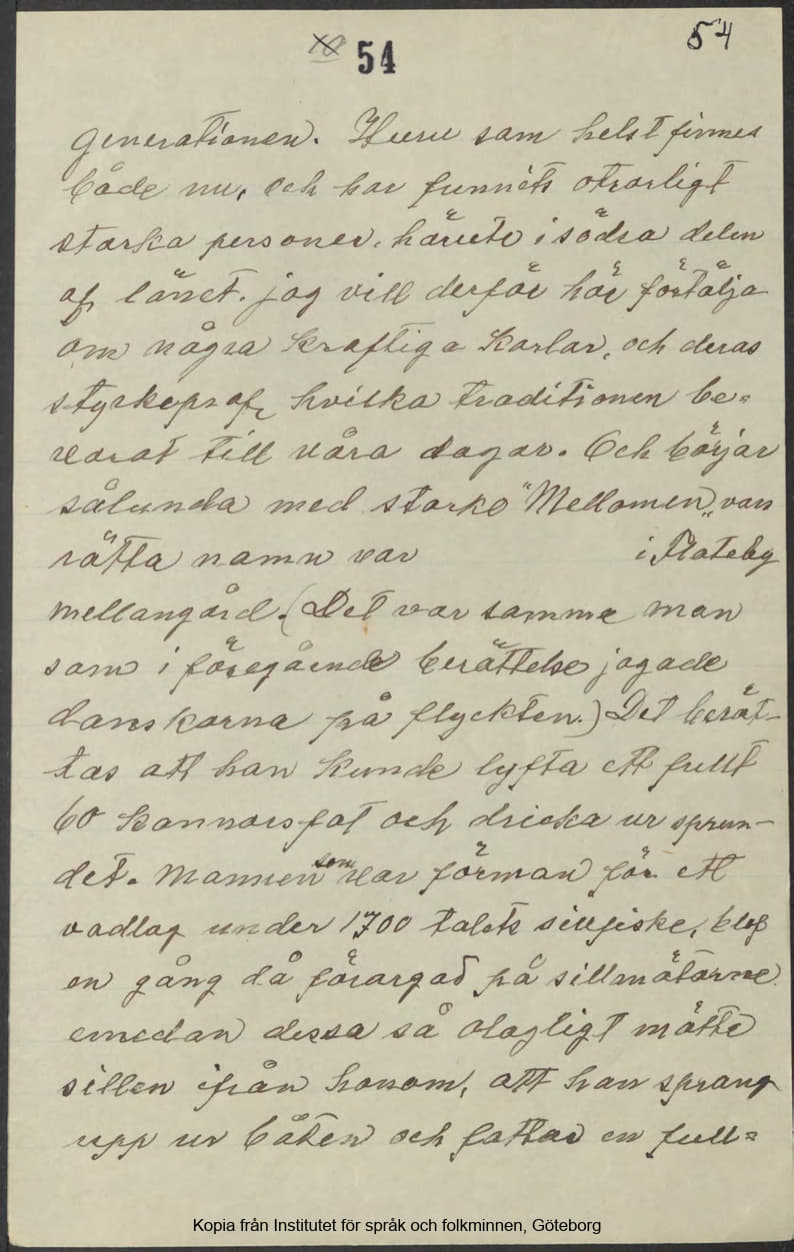 10 54 54
generationen. Huru som helst finnes
både nu, och har funnits otroligt
starka personer, härute i södra delen
af länet. jag vill derför här förtälja
om några kraftiga Karlar, och deras
styrkeprof, hvilka traditionen be=
varat till våra dagar. Och börjar
sålunda med starke "Mellomen" vars
rätta namn var i Flateby
mellangård. (Det var samme man
som i föregående berättelse jagade
danskarna på flyckten.) Det berät-
tas att han Kunde lyfta ett fullt
60 Kannorsfat och dricka ur sprun-
det. Mannen som var förman för ett
vadlag under 1700 talets sillfiske, blef
en gång då förargad på sillmätarne
emedan dessa så olagligt mätte
sillen ifrån honom, att han sprang
upp ur båten och fattar en full=
Kopia från Institutet för språk och folkminnen, Göteborg